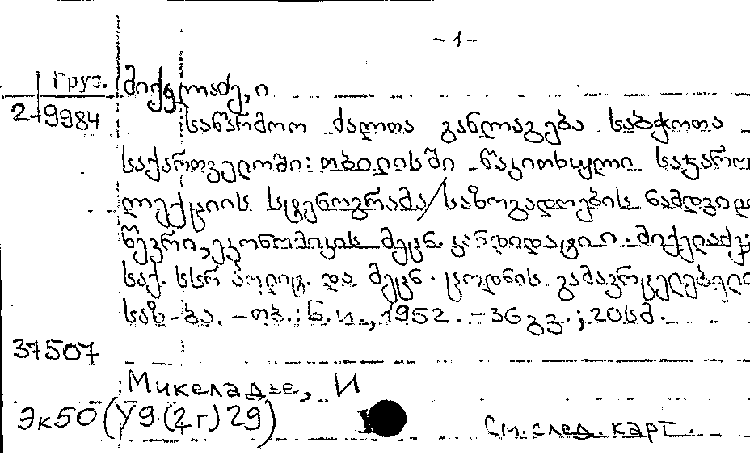 - 1 -
Груз. მიქელაძე, ი
2-9984 საწარმოო ძალთა განლაგება საბჭოთა
საქართველოში: თბილისში წაკითხული საჯარო
ლექციის სტენოგრამა/საზოგადოების ნამდვილ
წევრი, ეკონომიკის მეცნ. კანდიდატი ი. მიქელაძე
საქ. სსრ პოლიტ. და მეცნ. ცოდნის გამავრცელებელი
საზ-ბა. - თბ.: ბ. ი., 1952. - 36 გვ.; 20 სმ.
37507
Микеладзе, И
Эк50(У9(2г)29)
См. след. карт.